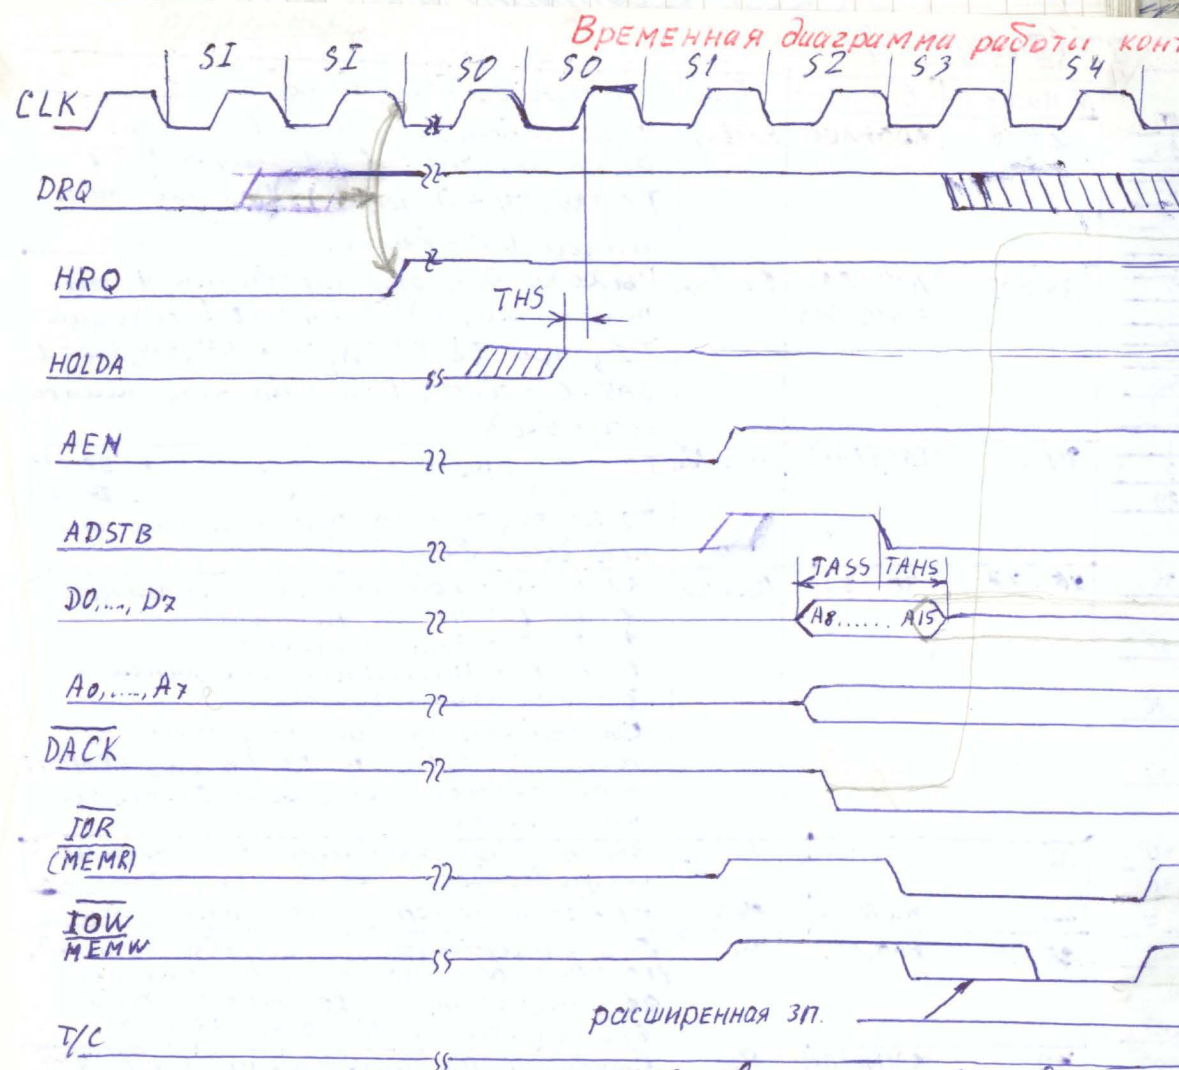 Временная диаграмма работы конт
SI SI S0 S0 S1 S2 S3 S4
CLK
DRQ
HRQ
THS
HOLDA
AEN
ADSTB
TASS TAHS
D0,..., D7
A8...... A15
A0,....,A7
DACK
IOR
(MEMR)
IOW
MEMW
расширенная зп.
T/C